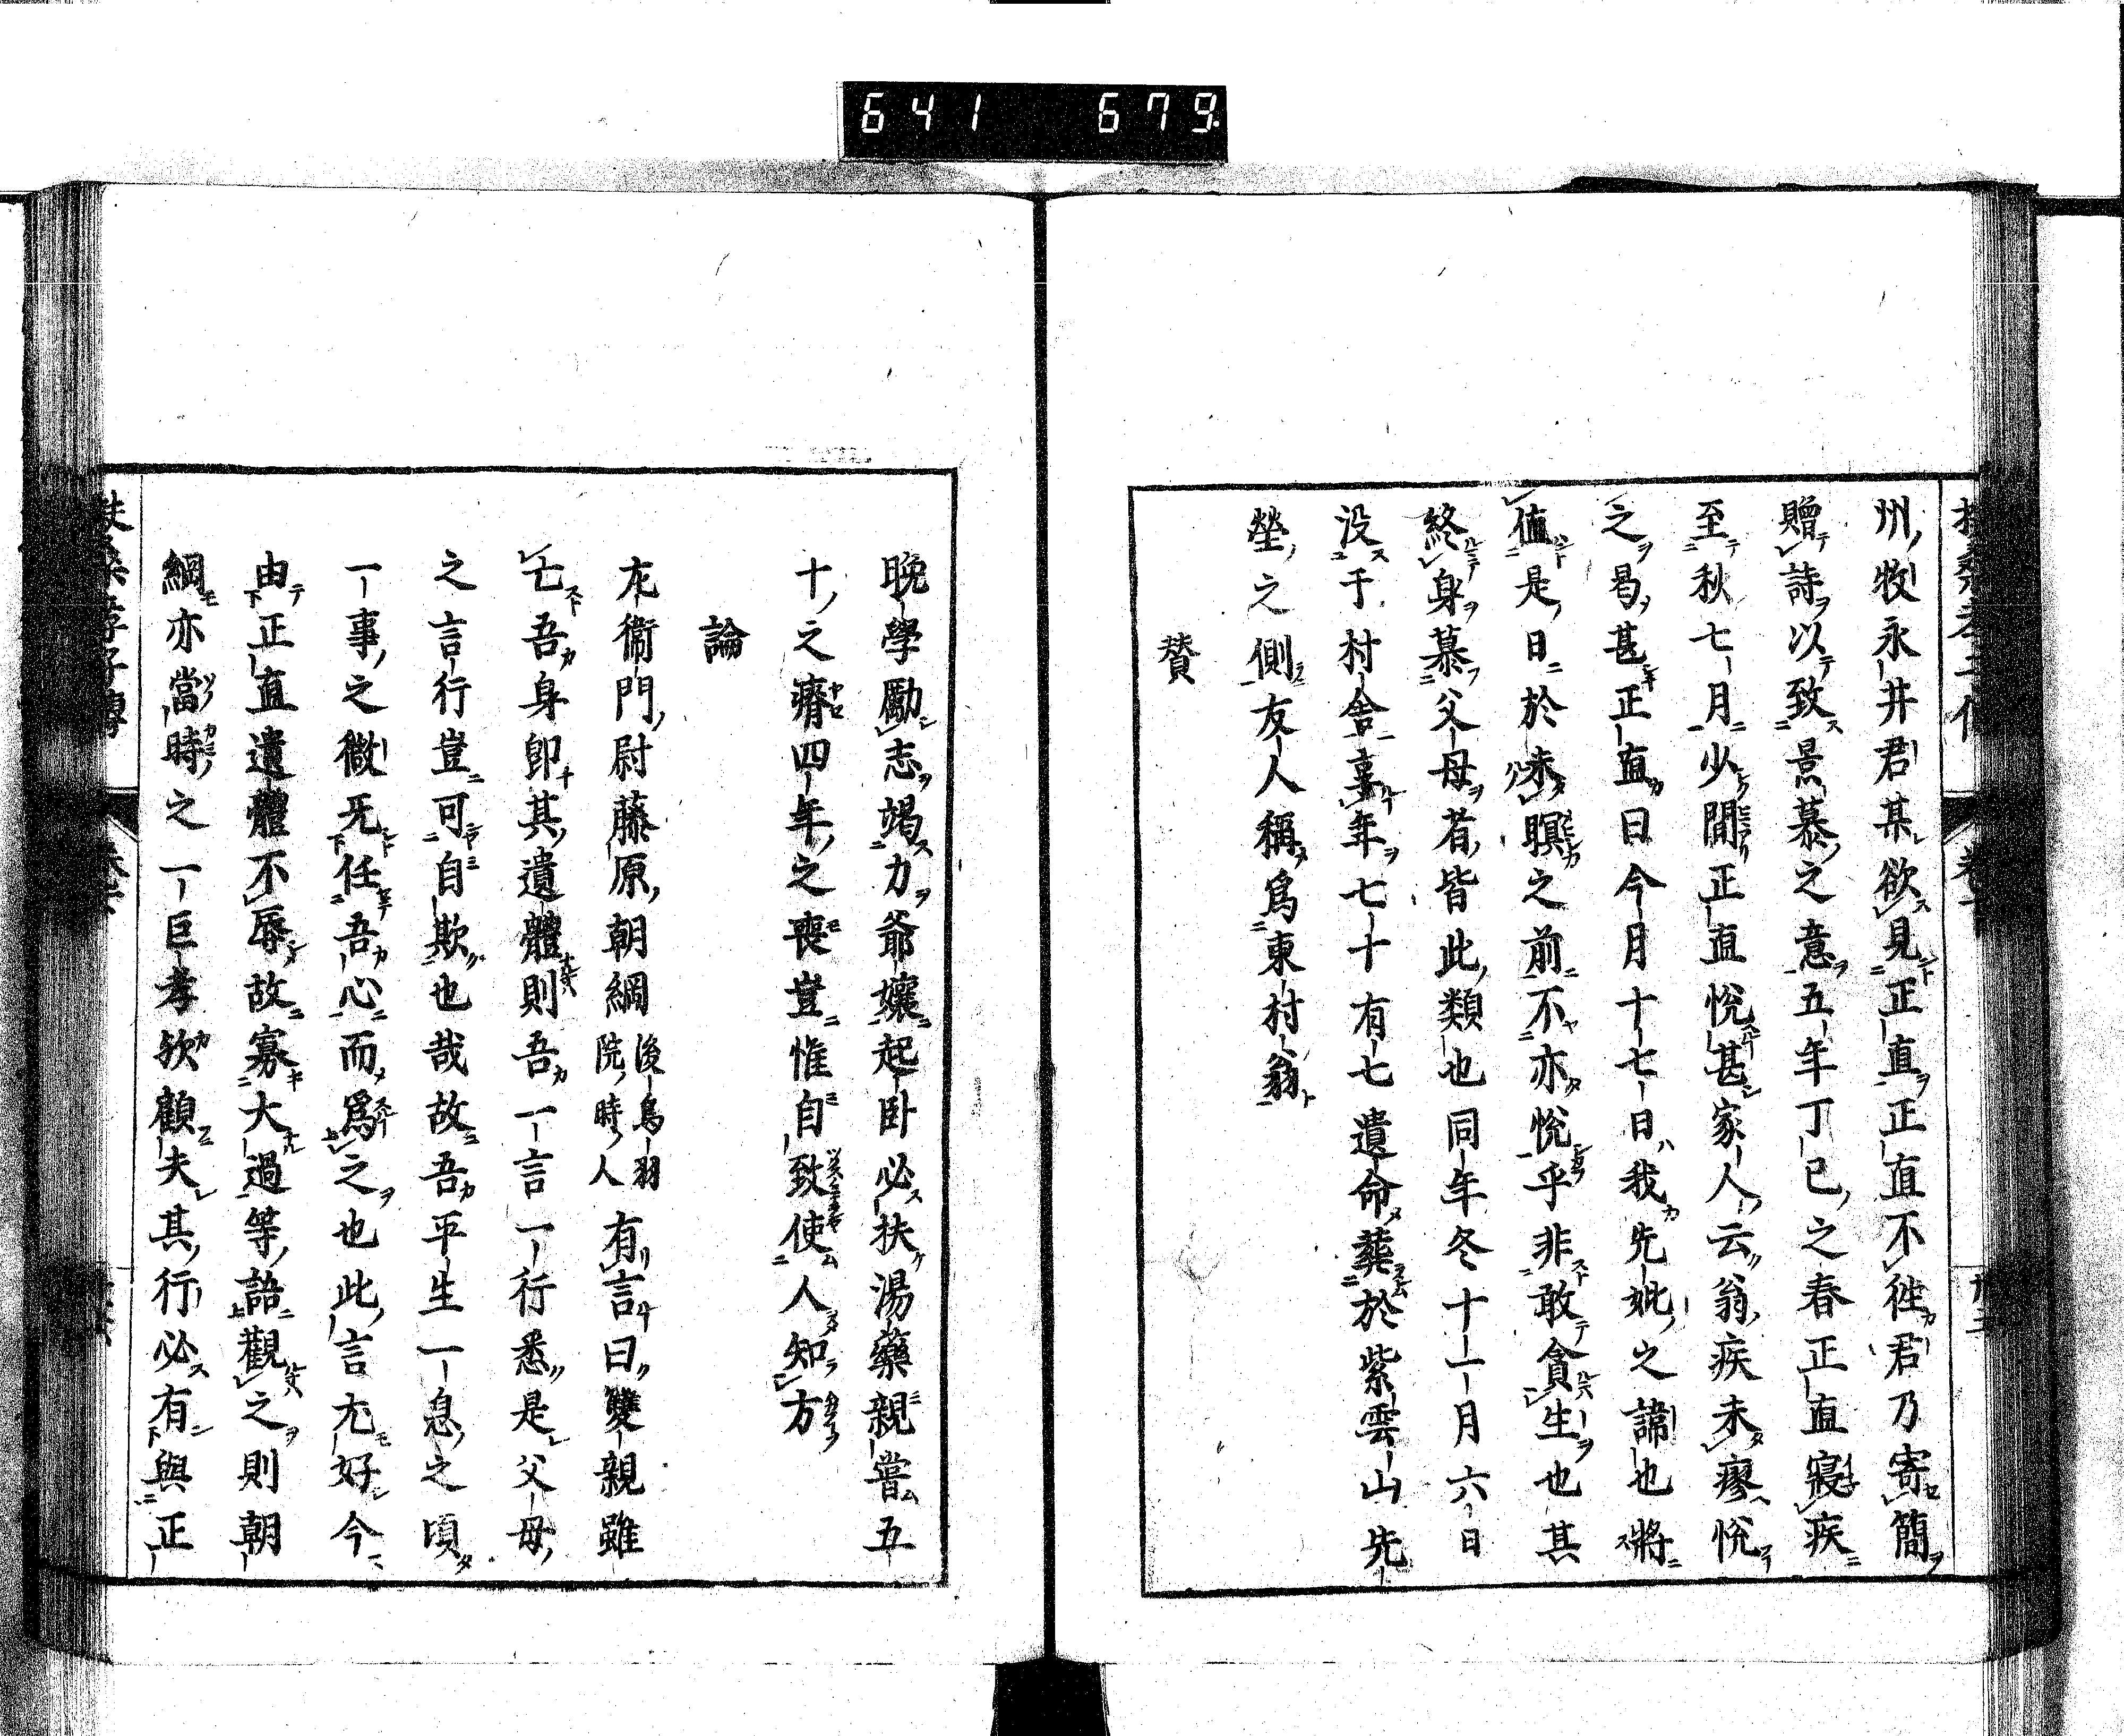 641 679
州牧永井君某欲見正直正直不往君乃寄簡
贈詩以致景慕之意五年丁已之春正直寢疾
至秋七月少間正直悅甚家人云翁疾未瘳悅
之曷甚正直曰今月十七日我先妣之諱也將
值是日於未瞑之前不亦悅乎非敢貪生也其
終身慕父母者皆此類也同年冬十一月六日
没于村舍享年七十有七遺命葬於紫雲山先
塋之側友人稱爲東村翁
贊
晚學勵志竭力爺孃起卧必扶湯藥親嘗五
十之瘠四年之喪豈惟自致使人知方
論
左衞門尉藤原朝綱後鳥羽院時人有言曰雙親雖
亡吾身卽其遺體則吾一言一行悉是父母
之言行豈可自欺也哉故吾平生一息之頃
一事之微无任吾心而爲之也此言尤好今
由正直遺體不辱故寡大過等語觀之則朝
綱亦當時之一巨孝欤顧夫其行必有與正
扶桑孝子傳